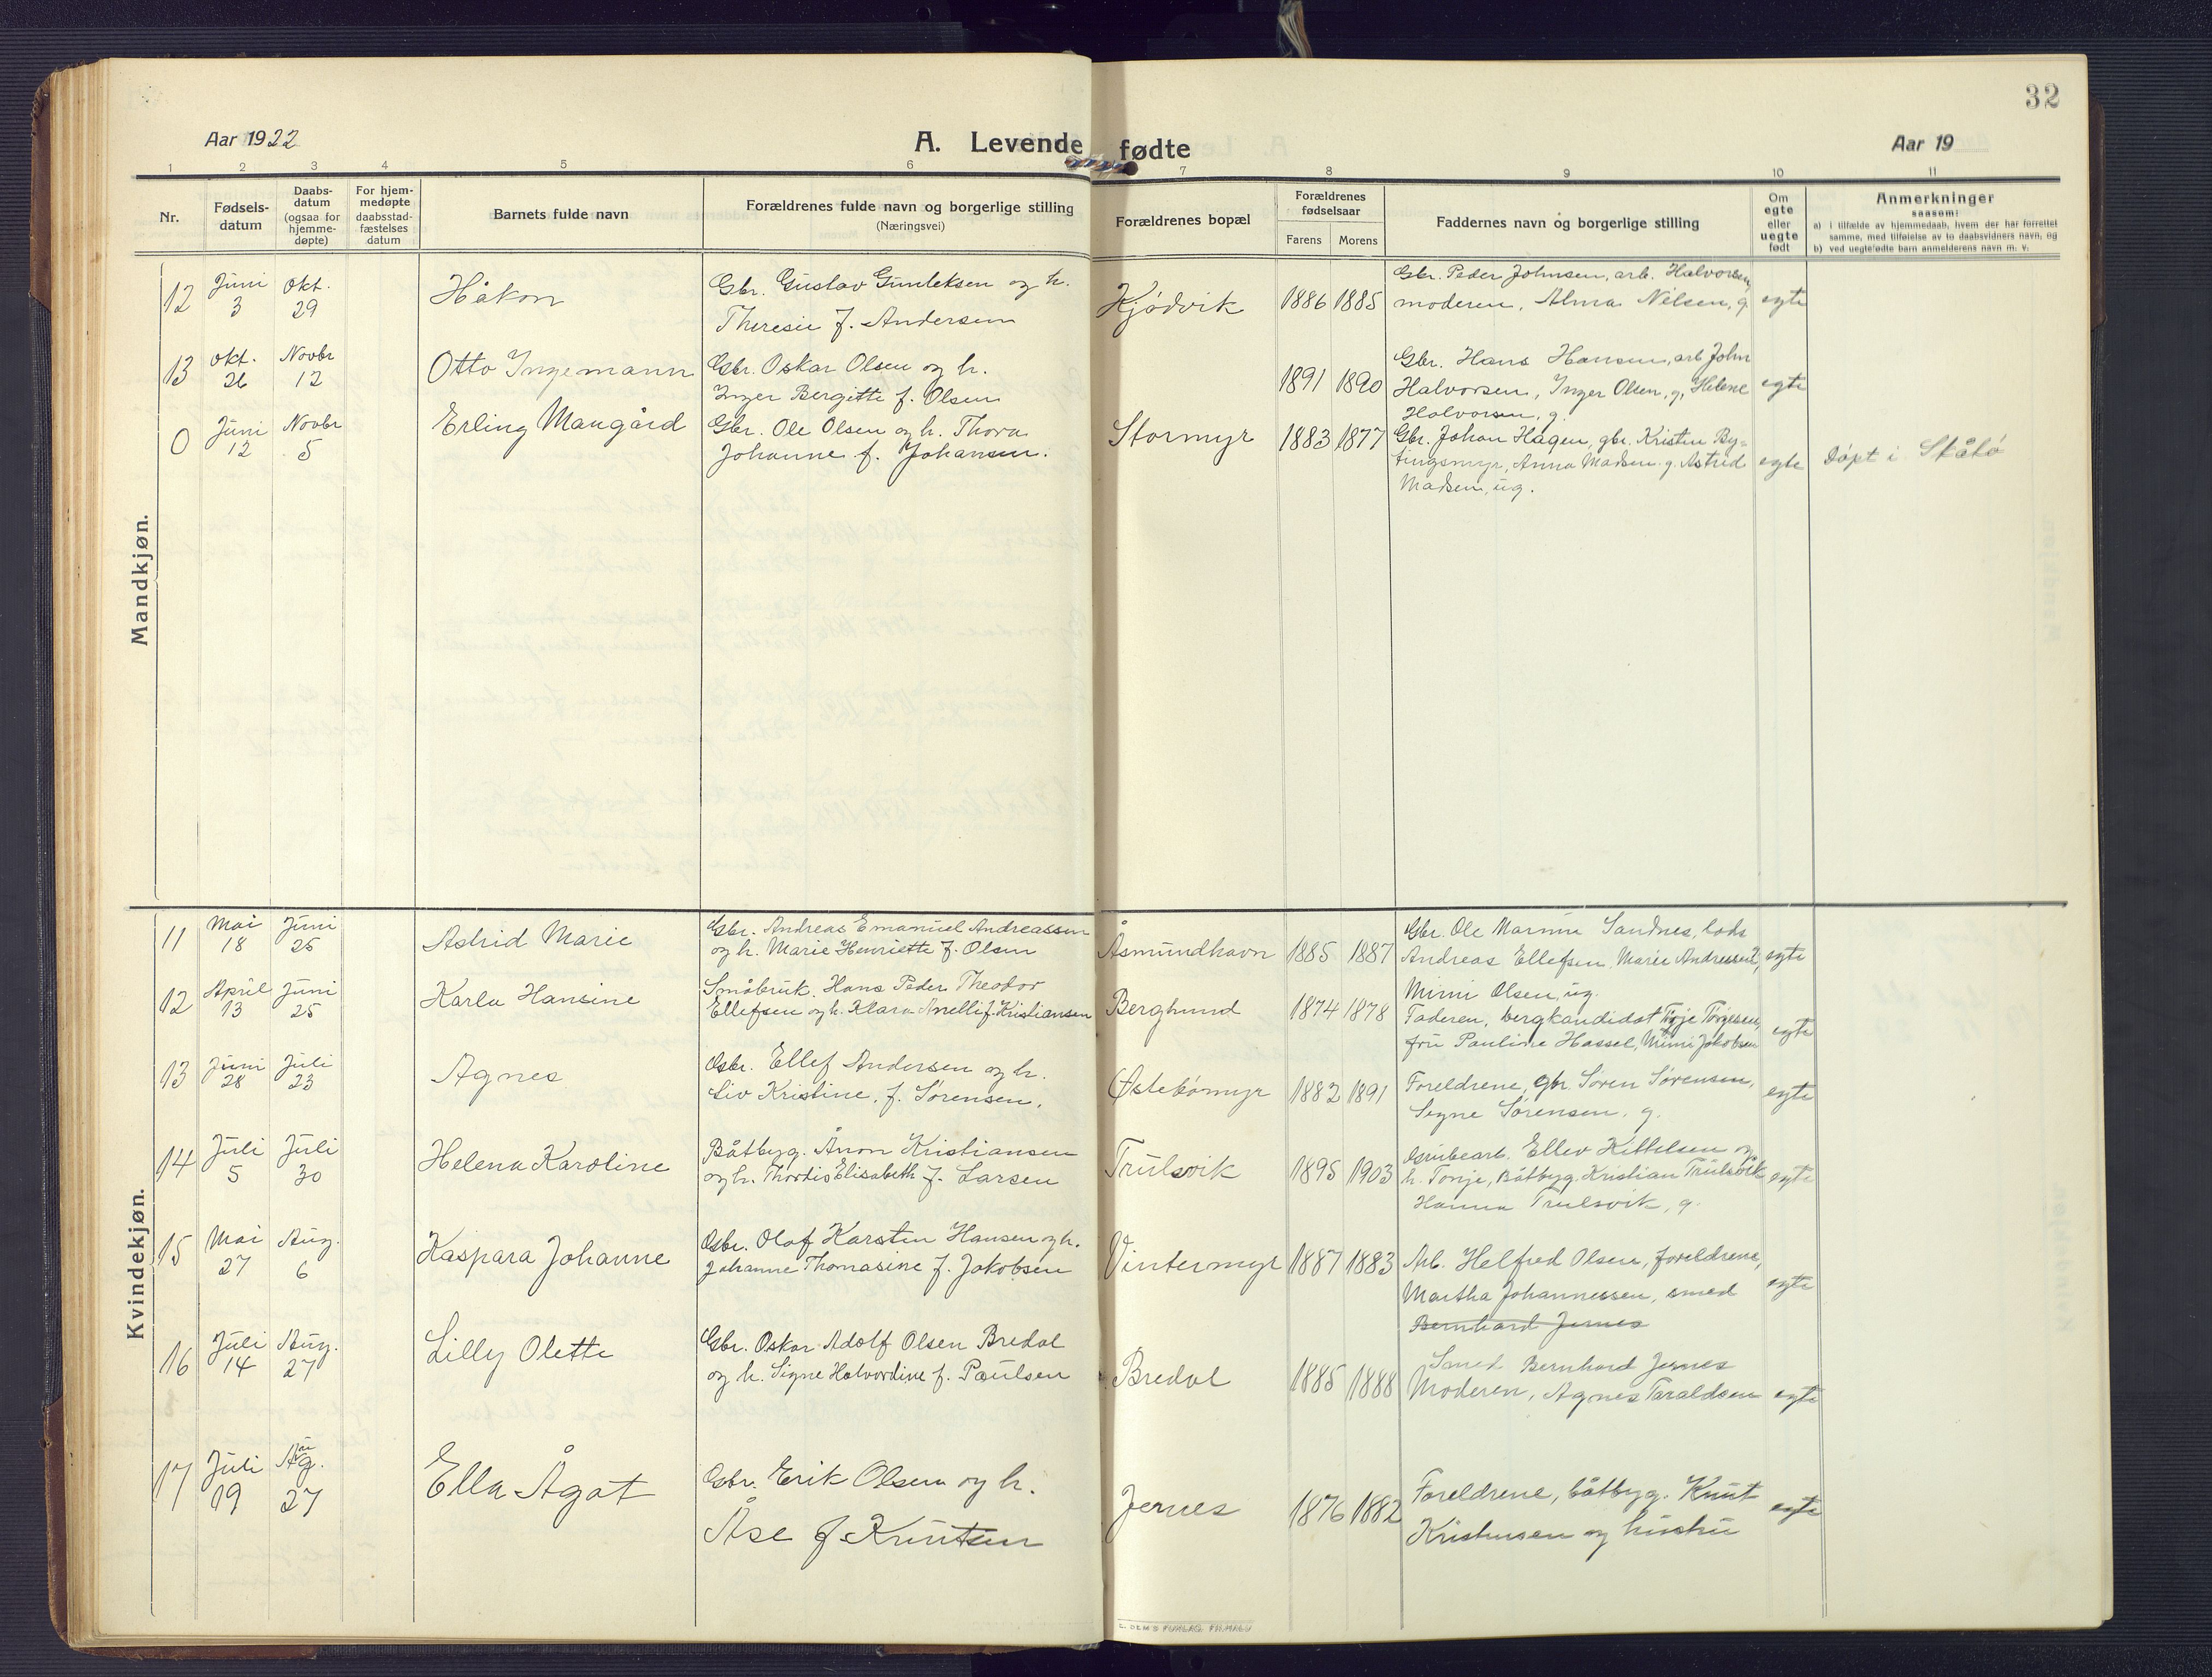 32
Aar 1922
A. Levende fødte
Aar 19
1 2 3 4 5 6 7 8 9 10 11
Nr.
Fødsels-
datum
Daabs-
datum
(ogsaa for
hjemme-
døpte)
For hjem-
medøpte
daabsstad-
fæstelses
datum
Barnets fulde navn
Forældrenes fulde navn og borgerlige stilling
(Næringsvei)
Forældrenes bopæl
Forældrenes
fødselsaar
Farens Morens
Faddernes navn og borgerlige stilling
Om
egte
eller
uegte
født
Anmerkninger
saasom:
a) i tilfælde av hjemmedaab, hvem der har forrettet
samme, med tilføielse av to daabsvidners navn, og
b) ved uegtefødte barn anmelderens navn m. v.
Mandkjøn.
12
Juni
3
Okt.
29
Håkon
Gbr. Gustav Gunleksen og h.
Theresie f. Andersen
Kjødvik
1886 1885
Gbr. Peder Johnsen, arb. Halvorsen,
moderen, Alma Nilsen, g.
egte
13
Okt.
26
Novbr
12
Otto Ingemann
Gbr. Oskar Olsen og h.
Inger Bergitte f. Olsen
1891 1890
Gbr. Hans Hansen, arb John
Halvorsen, Inger Olsen, g, Helene
Halvorsen, g.
egte
0
Juni
12
Novbr
5
Erling Maugård
Gbr. Ole Olsen og h. Thora
Johanne f. Johansen.
Stormyr
1883 1877
Gbr. Johan Hagen, gbr. Kristen By-
tingsmyr, Anna Madsen g. Astrid
Madsen, ug.
egte
Døpt i Skåtø
Kvindekjøn.
11
Mai
18
Juni
25
Astrid Marie
Gbr. Andreas Emanuel Andreassen
og h. Marie Henriette f. Olsen
Åsmundhavn
1885 1887
Gbr. Ole Sandnes, lods
Andreas Ellefsen, Marie
Mimi Olsen, ug.
egte
12
April
13
Juni
25
Karla Hansine
Småbruk. Hans Peder Theodor
Ellefsen og h. Klara f. Kristiansen
Berglund
1874 1878
Faderen, bergkandidat Torjesen,
fru Pauline Hassel, Mimi Jakobsen
egte
13
Juni
28
Juli
23
Agnes
Gbr. Ellef Andersen og h.
Siv Kristine, f. Sørensen.
Østebømyr
1882 1891
Foreldrene, gbr. Søren Sørensen,
Signe Sørensen. g.
egte
14
Juli
5
Juli
30
Helena Karoline
Båtbyg. Anon Kristiansen
og h. Thordis Elisabeth f. Larsen
Trulsvik
1895 1903
Grubearb. Ellev Kittelsen og
h. Tonje, Båtbyg. Kristian Trulsvik
Hanna Trulsvik, g.
egte
15
Mai
27
Aug.
6
Kaspara Johanne
Gbr. Olaf Karsten Hansen og h.
Johanne Thomasine f. Jakobsen
Vintermyr
1887 1883
Arb. Helfred Olsen, foreldrene,
Martha Johannessen, smed
Bernhard Jernes
egte
16
Juli
14
Aug.
27
Lilly Olette
Gbr. Oskar Adolf Olsen Bredal
og h. Signe Halvordine f. Paulsen
Bredal
1885 1888
Smed Bernhard Jernes
Moderen, Agnes Taraldsen
egte
17
Juli
19
Aug.
27
Ella Ågot
Gbr. Erik Olsen og h.
Åse f Knutsen
Jernes
1876 1882
Foreldrene, båtbyg. Knut
Kristensen og hustru
egte